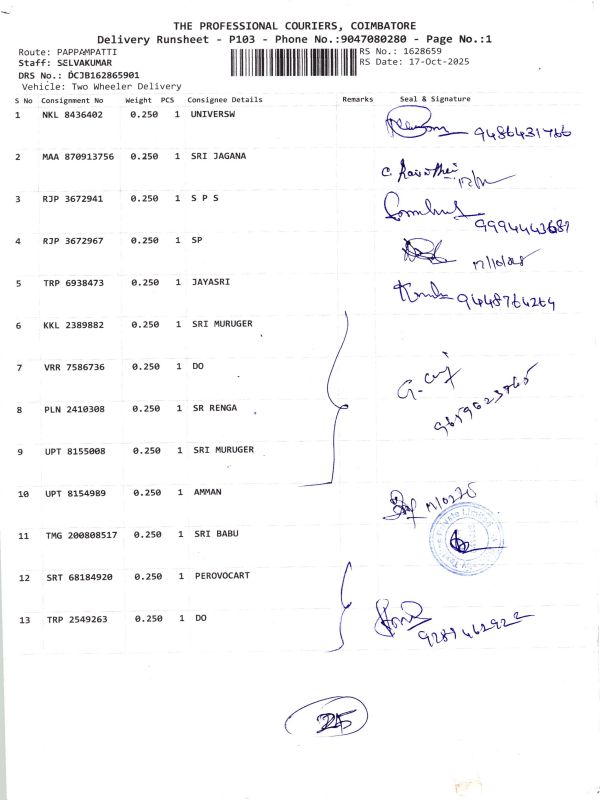 THE PROFESSIONAL COURIERS, COIMBATORE
Delivery Runsheet - P103 - Phone No.:9047080280 - Page No.:1
Route: PAPPAMPATTI
RS No.: 1628659
Staff: SELVAKUMAR
RS Date: 17-Oct-2025
DRS No.: DCJB162865901
Vehicle: Two Wheeler Delivery
S No Consignment No Weight PCS Consignee Details Remarks Seal & Signature
1 NKL 8436402 0.250 1 UNIVERSW 9486431766
2 MAA 870913756 0.250 1 SRI JAGANA
3 RJP 3672941 0.250 1 S P S 9994443687
4 RJP 3672967 0.250 1 SP 17/10/25
5 TRP 6938473 0.250 1 JAYASRI 9448764264
6 KKL 2389882 0.250 1 SRI MURUGER
7 VRR 7586736 0.250 1 DO
8 PLN 2410308 0.250 1 SR RENGA 9659623765
9 UPT 8155008 0.250 1 SRI MURUGER
10 UPT 8154989 0.250 1 AMMAN
11 TMG 200808517 0.250 1 SRI BABU
12 SRT 68184920 0.250 1 PEROVOCART
13 TRP 2549263 0.250 1 DO 9289462922